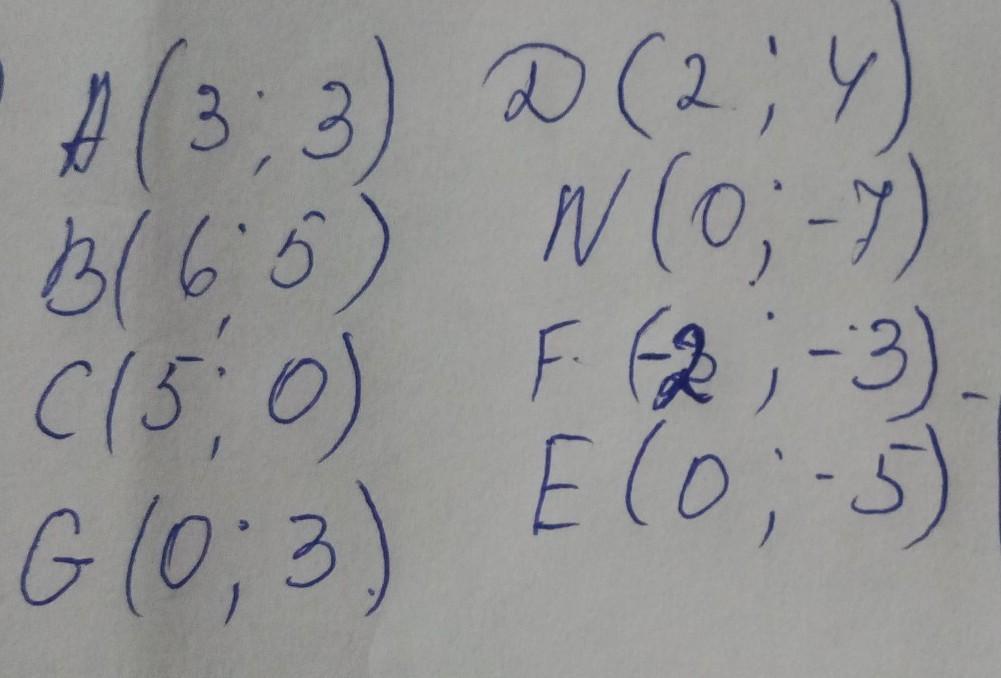 A(3; 3)
B(6; 5)
C(5; 0)
G(0; 3)
D(2; 4)
N(0; -7)
F(-2; -3)
E(0; -5)